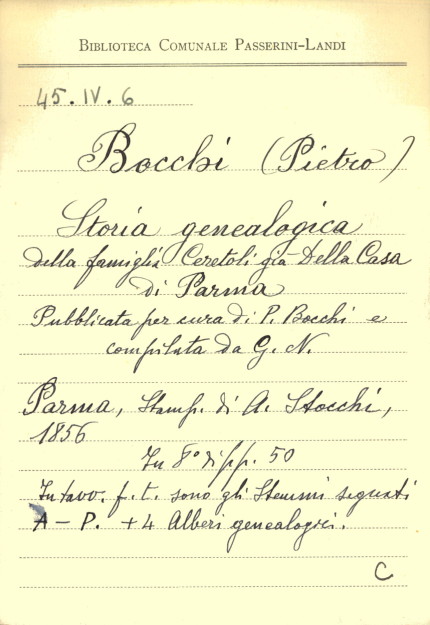 BIBLIOTECA COMUNALE PASSERINI-LANDI
45. IV. 6
Bocchi (Pietro)
Storia genealogica
della famiglia Ceretoli già Della Casa
di Parma
Pubblicata per cura di P. Bocchi e
compilata da G. N.
Parma, Stamp. di A. Stocchi,
1856
In 8° di pp. 50
In tavv. f. t. sono gli Stemmi segnati
A - P. + 4 Alberi genealogici.
C